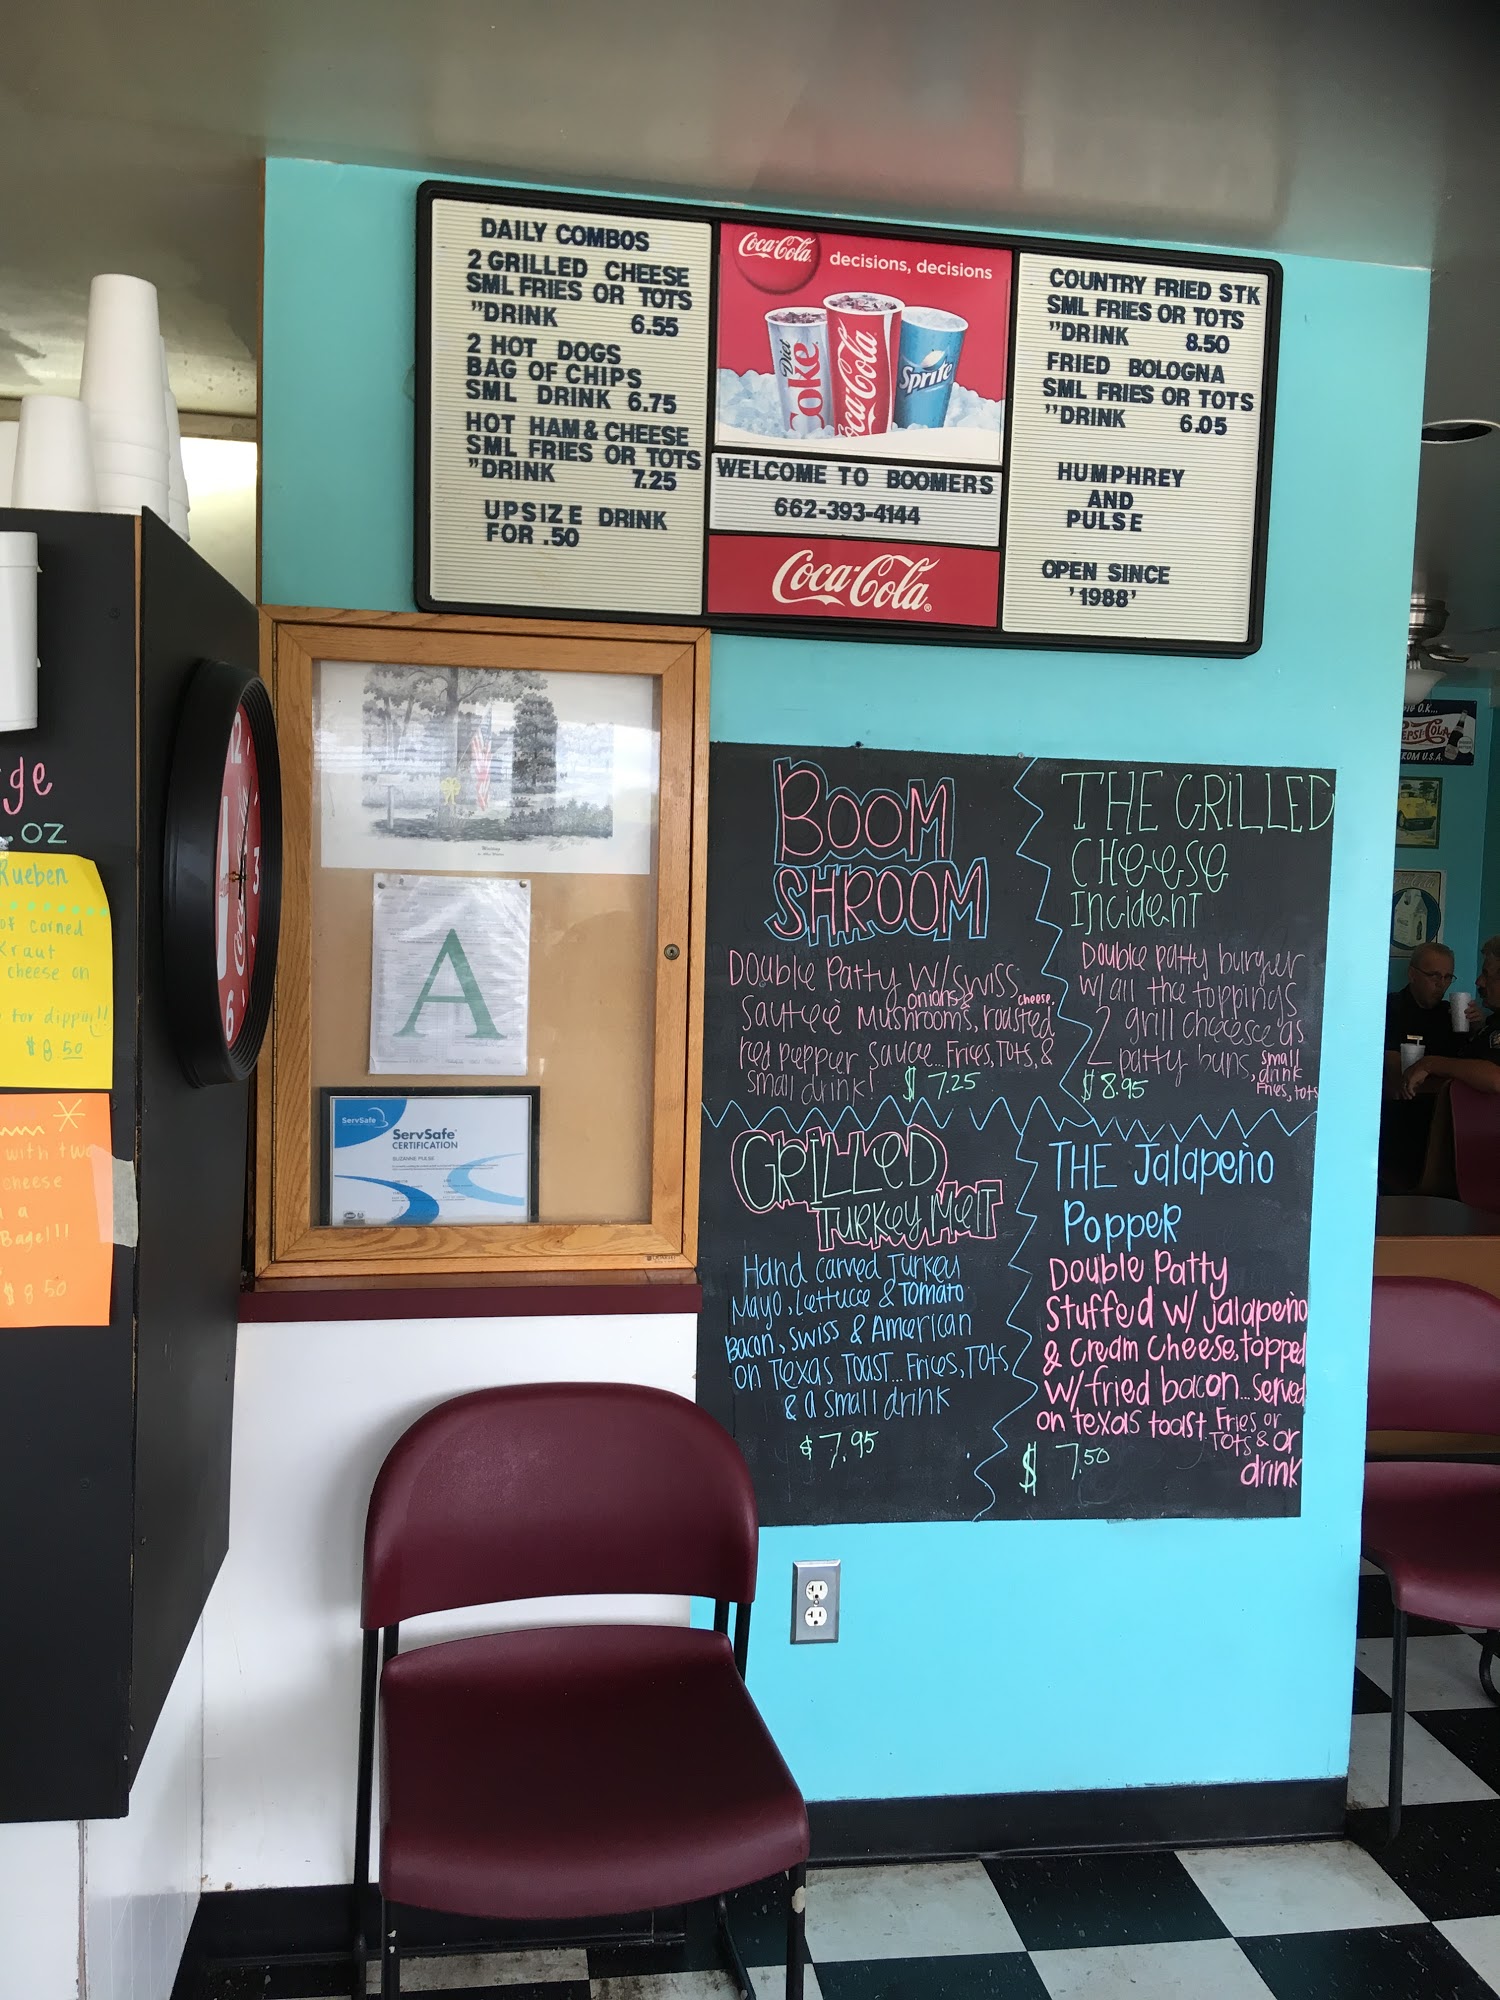 DAILY COMBOS
2 GRILLED CHEESE
SML FRIES OR TOTS
"DRINK 6.55
2 HOT DOGS
BAG OF CHIPS
SML DRINK 6.75
HOT HAM & CHEESE
SML FRIES OR TOTS
"DRINK 7.25
UPSIZE DRINK
FOR .50
Coca-Cola
decisions, decisions
Diet Coke
Coca-Cola
Sprite
WELCOME TO BOOMERS
662-393-4144
Coca-Cola
COUNTRY FRIED STK
SML FRIES OR TOTS
"DRINK 8.50
FRIED BOLOGNA
SML FRIES OR TOTS
"DRINK 6.05
HUMPHREY
AND
PULSE
OPEN SINCE
'1988'
A
ServSafe
ServSafe
CERTIFICATION
SUZANNE PULSE
12
3
6
Coca-Cola
ge
OZ
Rueben
of corned
Kraut
cheese on
for dipping!!
$8.50
with two
cheese
a
Bagel!!
$8.50
BOOM
SHROOM
Double Patty w/ swiss
cheese,
onions &
Sauteé Mushrooms, roasted
red pepper sauce...Fries, Tots, &
small drink! $7.25
THE GRILLED
CHeese
INCIDENT
Double patty burger
w/ all the toppings
2 grill cheeese as
2 patty buns, small
drink
Fries, tots
$8.95
GRILLED
TURKEY MelT
Hand carved Turkey
Mayo, Lettucce & Tomato
Bacon, Swiss & American
on Texas Toast... Fries, Tots
& a small drink
$7.95
THE Jalapeño
Popper
Double Patty
Stuffed w/ jalapeño
& cream cheese, topped
w/ fried bacon... Served
on texas toast Fries or
Tots & or
drink
$7.50
PEPSI-COLA
FROM U.S.A.